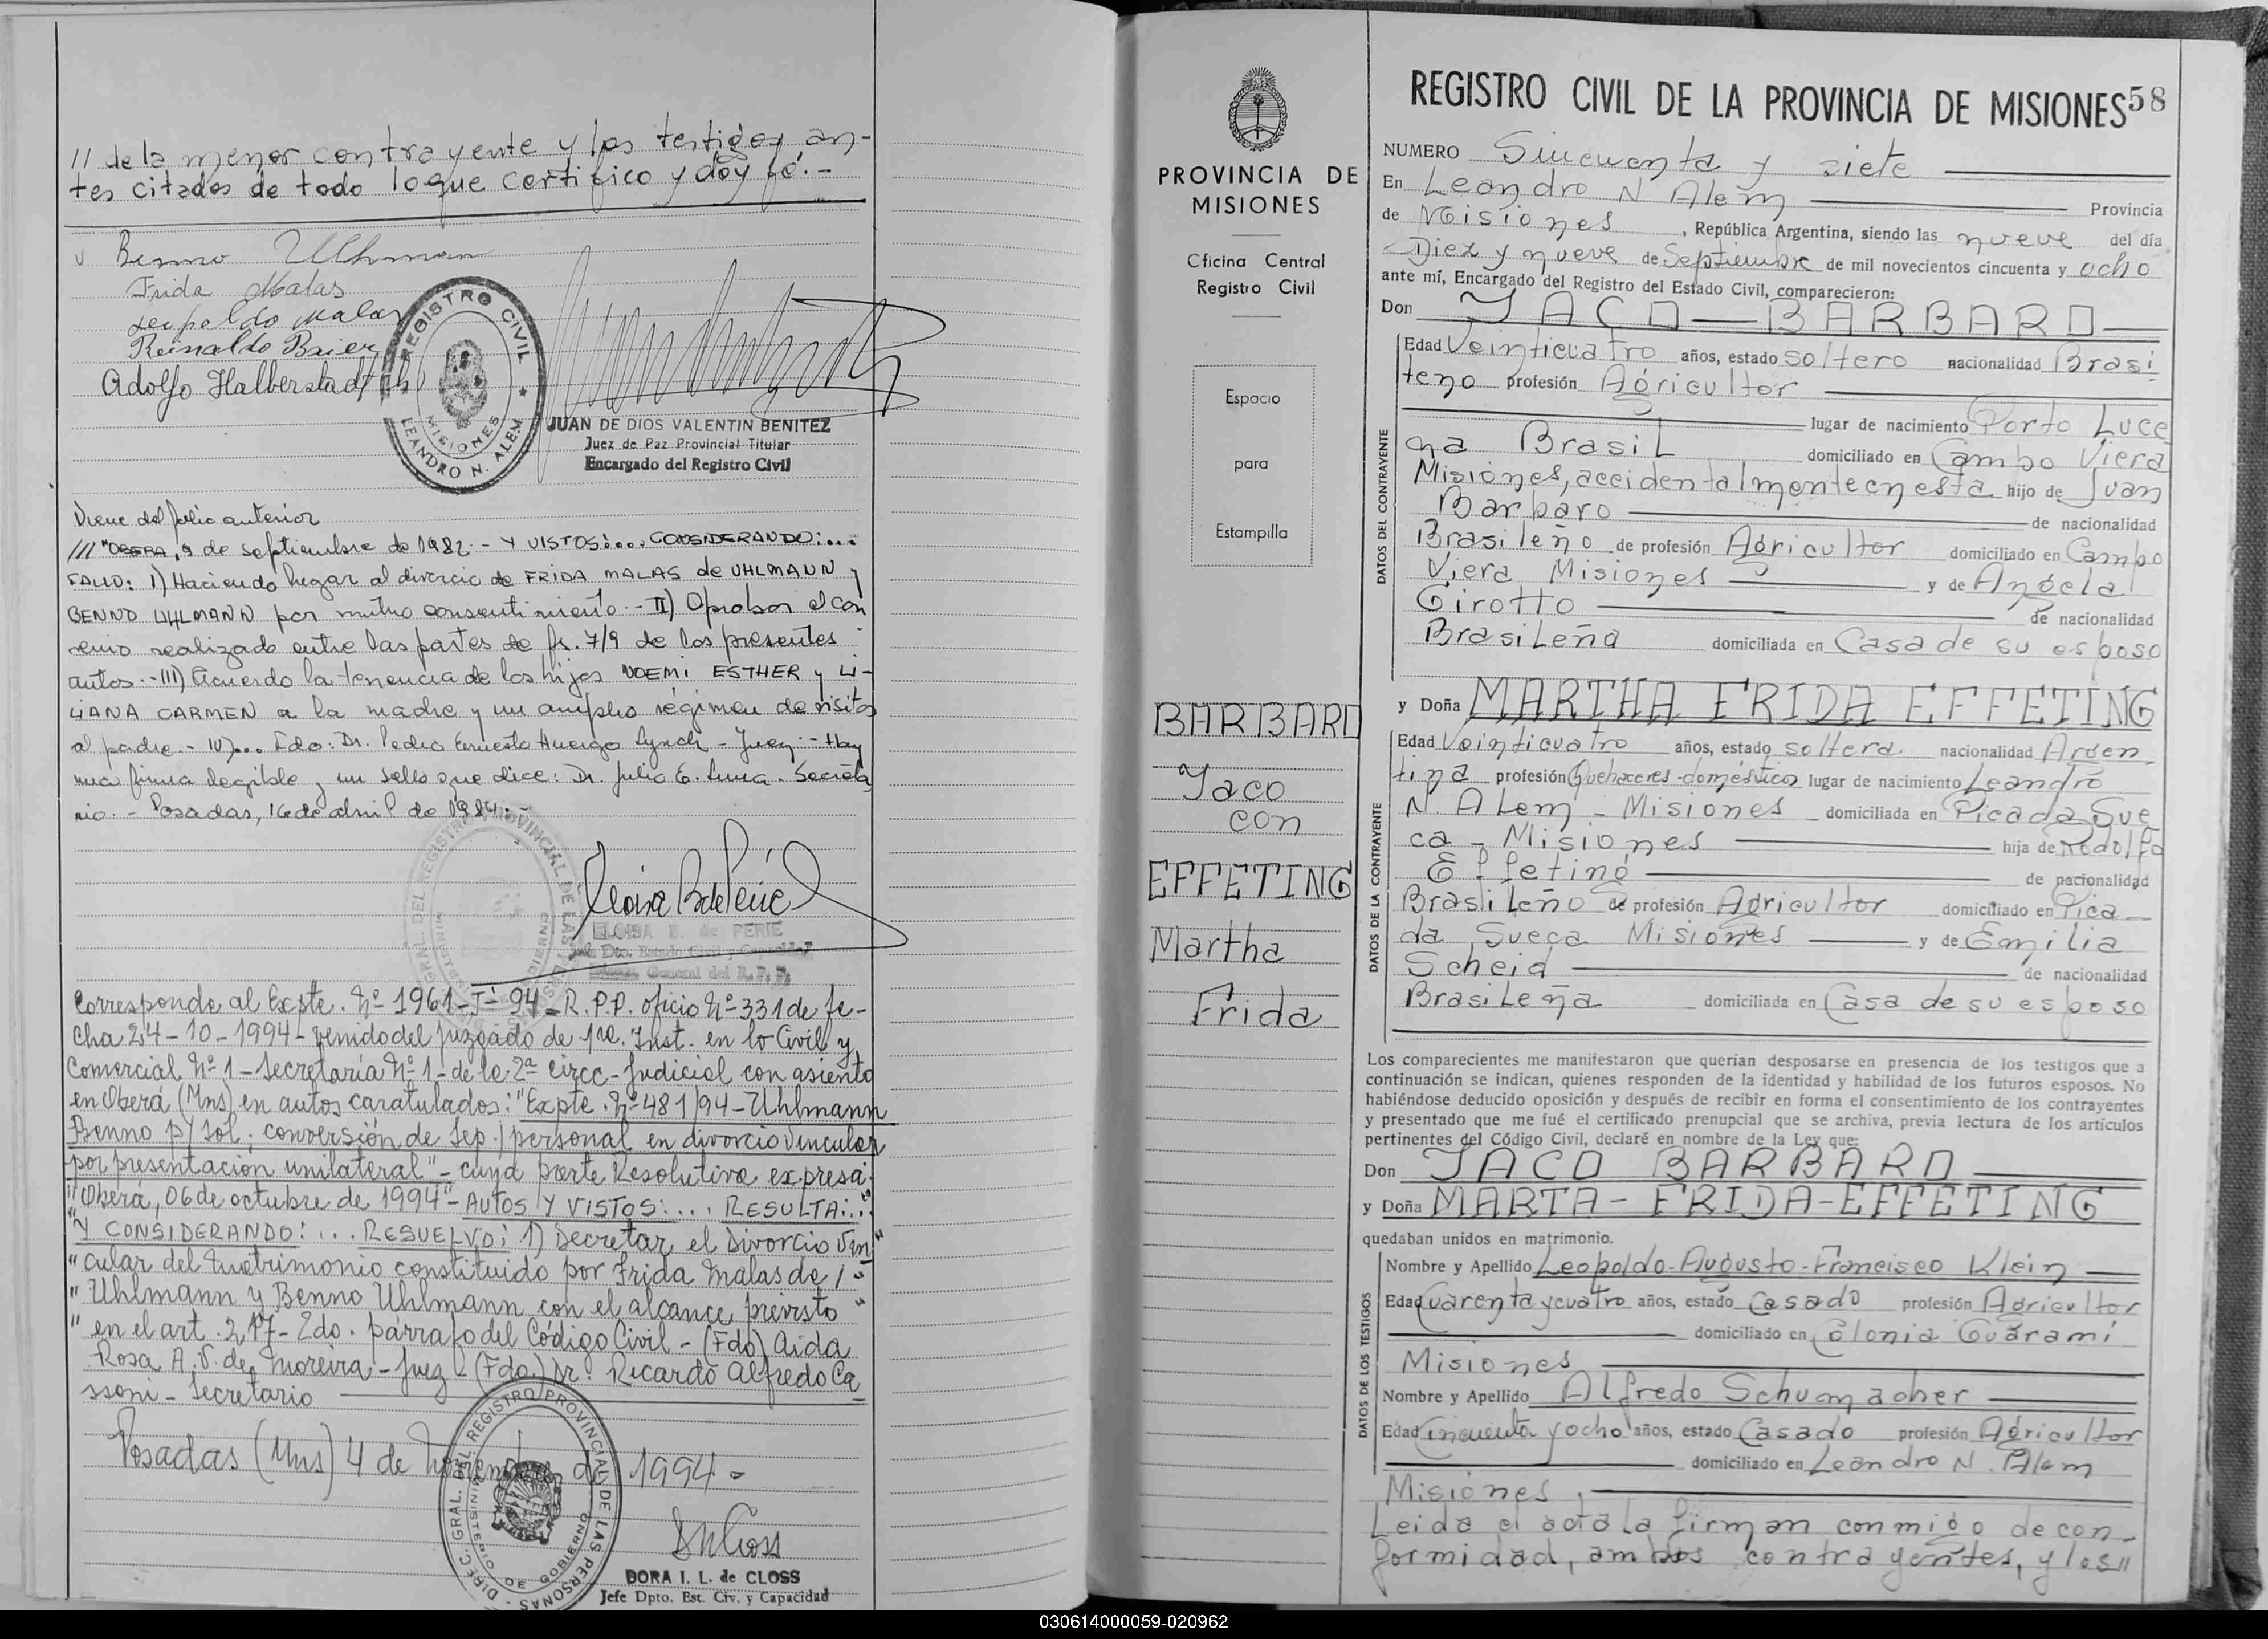 // de la menor contrayente y los testigos an-
tes citados de todo lo que certifico y doy fé.-
Benno Uhlmann
Frida Malas
Leopoldo Malas
Reinaldo Baier
Adolfo Halberstadt (h)
REGISTRO CIVIL
MISIONES
LEANDRO N. ALEM
JUAN DE DIOS VALENTIN BENITEZ
Juez de Paz Provincial Titular
Encargado del Registro Civil
Viene del folio anterior
/// "OBERA, 9 de septiembre de 1982.- Y VISTOS:... CONSIDERANDO:...
FALLO: I) Haciendo lugar al divorcio de FRIDA MALAS de UHLMANN y
BENNO UHLMANN por mutuo consentimiento.- II) Aprobar el con
venio realizado entre las partes de fs. 7/9 de los presentes
autos.- III) Acuerdo la tenencia de los hijos NOEMI ESTHER y LI-
LIANA CARMEN a la madre y un amplio régimen de visitas
al padre.- IV)... Fdo: Dr. Pedro Ernesto Huergo Lynch - Juez.- Hay
una firma ilegible y un sello que dice: Dr. Julio E. Luna. Secreta
rio.- Posadas, 16 de abril de 1984.-
ELOISA B. de PERIE
Jefe Dto. Estado Civil y Capacidad
Direc. General del R. P. P.
Corresponde al Expte. Nº 1961-J-94-R.P.P. oficio Nº 331 de fe-
cha 24-10-1994- venido del Juzgado de 1ra. Inst. en lo Civil y
Comercial Nº 1- Secretaría Nº 1- de la 2ª Circc- Judicial con asiento
en Oberá (Mns) en autos caratulados: "Expte. Nº 481/94- Uhlmann
Benno p/ sol; conversión de Sep./personal en divorcio vincular
por presentación unilateral"- cuya parte Resolutiva expresa:
"Oberá, 06 de octubre de 1994"- AUTOS Y VISTOS:... RESULTA:..."
"Y CONSIDERANDO:... RESUELVO: 1) Decretar el Divorcio Vin"
"cular del matrimonio constituido por Frida Malas de /"
"Uhlmann y Benno Uhlmann con el alcance previsto"
"en el art. 217- 2do. párrafo del Código Civil- (Fdo) Aida
Rosa A. V. de Moreira- Juez- (Fdo) Dr. Ricardo Alfredo Ca
ssoni- Secretario
Posadas (Mns) 4 de Noviembre de 1994-
DIREC. GRAL. DEL REGISTRO PROVINCIAL DE LAS PERSONAS
MINISTERIO DE GOBIERNO
DORA I. L. de CLOSS
Jefe Dpto. Est. Civ. y Capacidad
PROVINCIA DE
MISIONES
Oficina Central
Registro Civil
Espacio
para
Estampilla
BARBARO
Yaco
con
EFFETING
Martha
Frida
REGISTRO CIVIL DE LA PROVINCIA DE MISIONES 58
NUMERO Sincuenta y siete
En Leandro N Alem Provincia
de Misiones, República Argentina, siendo las nueve del día
Diez y nueve de Septiembre de mil novecientos cincuenta y ocho
ante mí, Encargado del Registro del Estado Civil, comparecieron:
Don YACO—BARBARO
DATOS DEL CONTRAYENTE
Edad Veinticuatro años, estado soltero nacionalidad Brasi
leño profesión Agricultor
lugar de nacimiento Porto Luce
na Brasil domiciliado en Campo Viera
Misiones, accidentalmente en esta hijo de Juan
Barbaro de nacionalidad
Brasileño de profesión Agricultor domiciliado en Campo
Viera Misiones y de Angela
Girotto de nacionalidad
Brasileña domiciliada en Casa de su esposo
y Doña MARTHA FRIDA EFFETING
DATOS DE LA CONTRAYENTE
Edad Veinticuatro años, estado soltera nacionalidad Argen
tina profesión Quehaceres-domésticos lugar de nacimiento Leandro
N. Alem - Misiones domiciliada en Picada Sue
ca - Misiones hija de Rodolfo
Effeting de nacionalidad
Brasileño de profesión Agricultor domiciliado en Pica
da Sueca Misiones y de Emilia
Scheid de nacionalidad
Brasileña domiciliada en Casa de su esposo
Los comparecientes me manifestaron que querían desposarse en presencia de los testigos que a
continuación se indican, quienes responden de la identidad y habilidad de los futuros esposos. No
habiéndose deducido oposición y después de recibir en forma el consentimiento de los contrayentes
y presentado que me fué el certificado prenupcial que se archiva, previa lectura de los artículos
pertinentes del Código Civil, declaré en nombre de la Ley que:
Don YACO BARBARO
y Doña MARTA-FRIDA-EFFETING
quedaban unidos en matrimonio.
DATOS DE LOS TESTIGOS
Nombre y Apellido Leopoldo-Augusto-Francisco Klein
Edad Cuarenta y cuatro años, estado Casado profesión Agricultor
domiciliado en Colonia Guaraní
Misiones
Nombre y Apellido Alfredo Schumacher
Edad Cincuenta y ocho años, estado Casado profesión Agricultor
domiciliado en Leandro N. Alem
Misiones
Leida el acta la firman conmigo de con-
formidad, ambos contrayentes, y los //
030614000059-020962